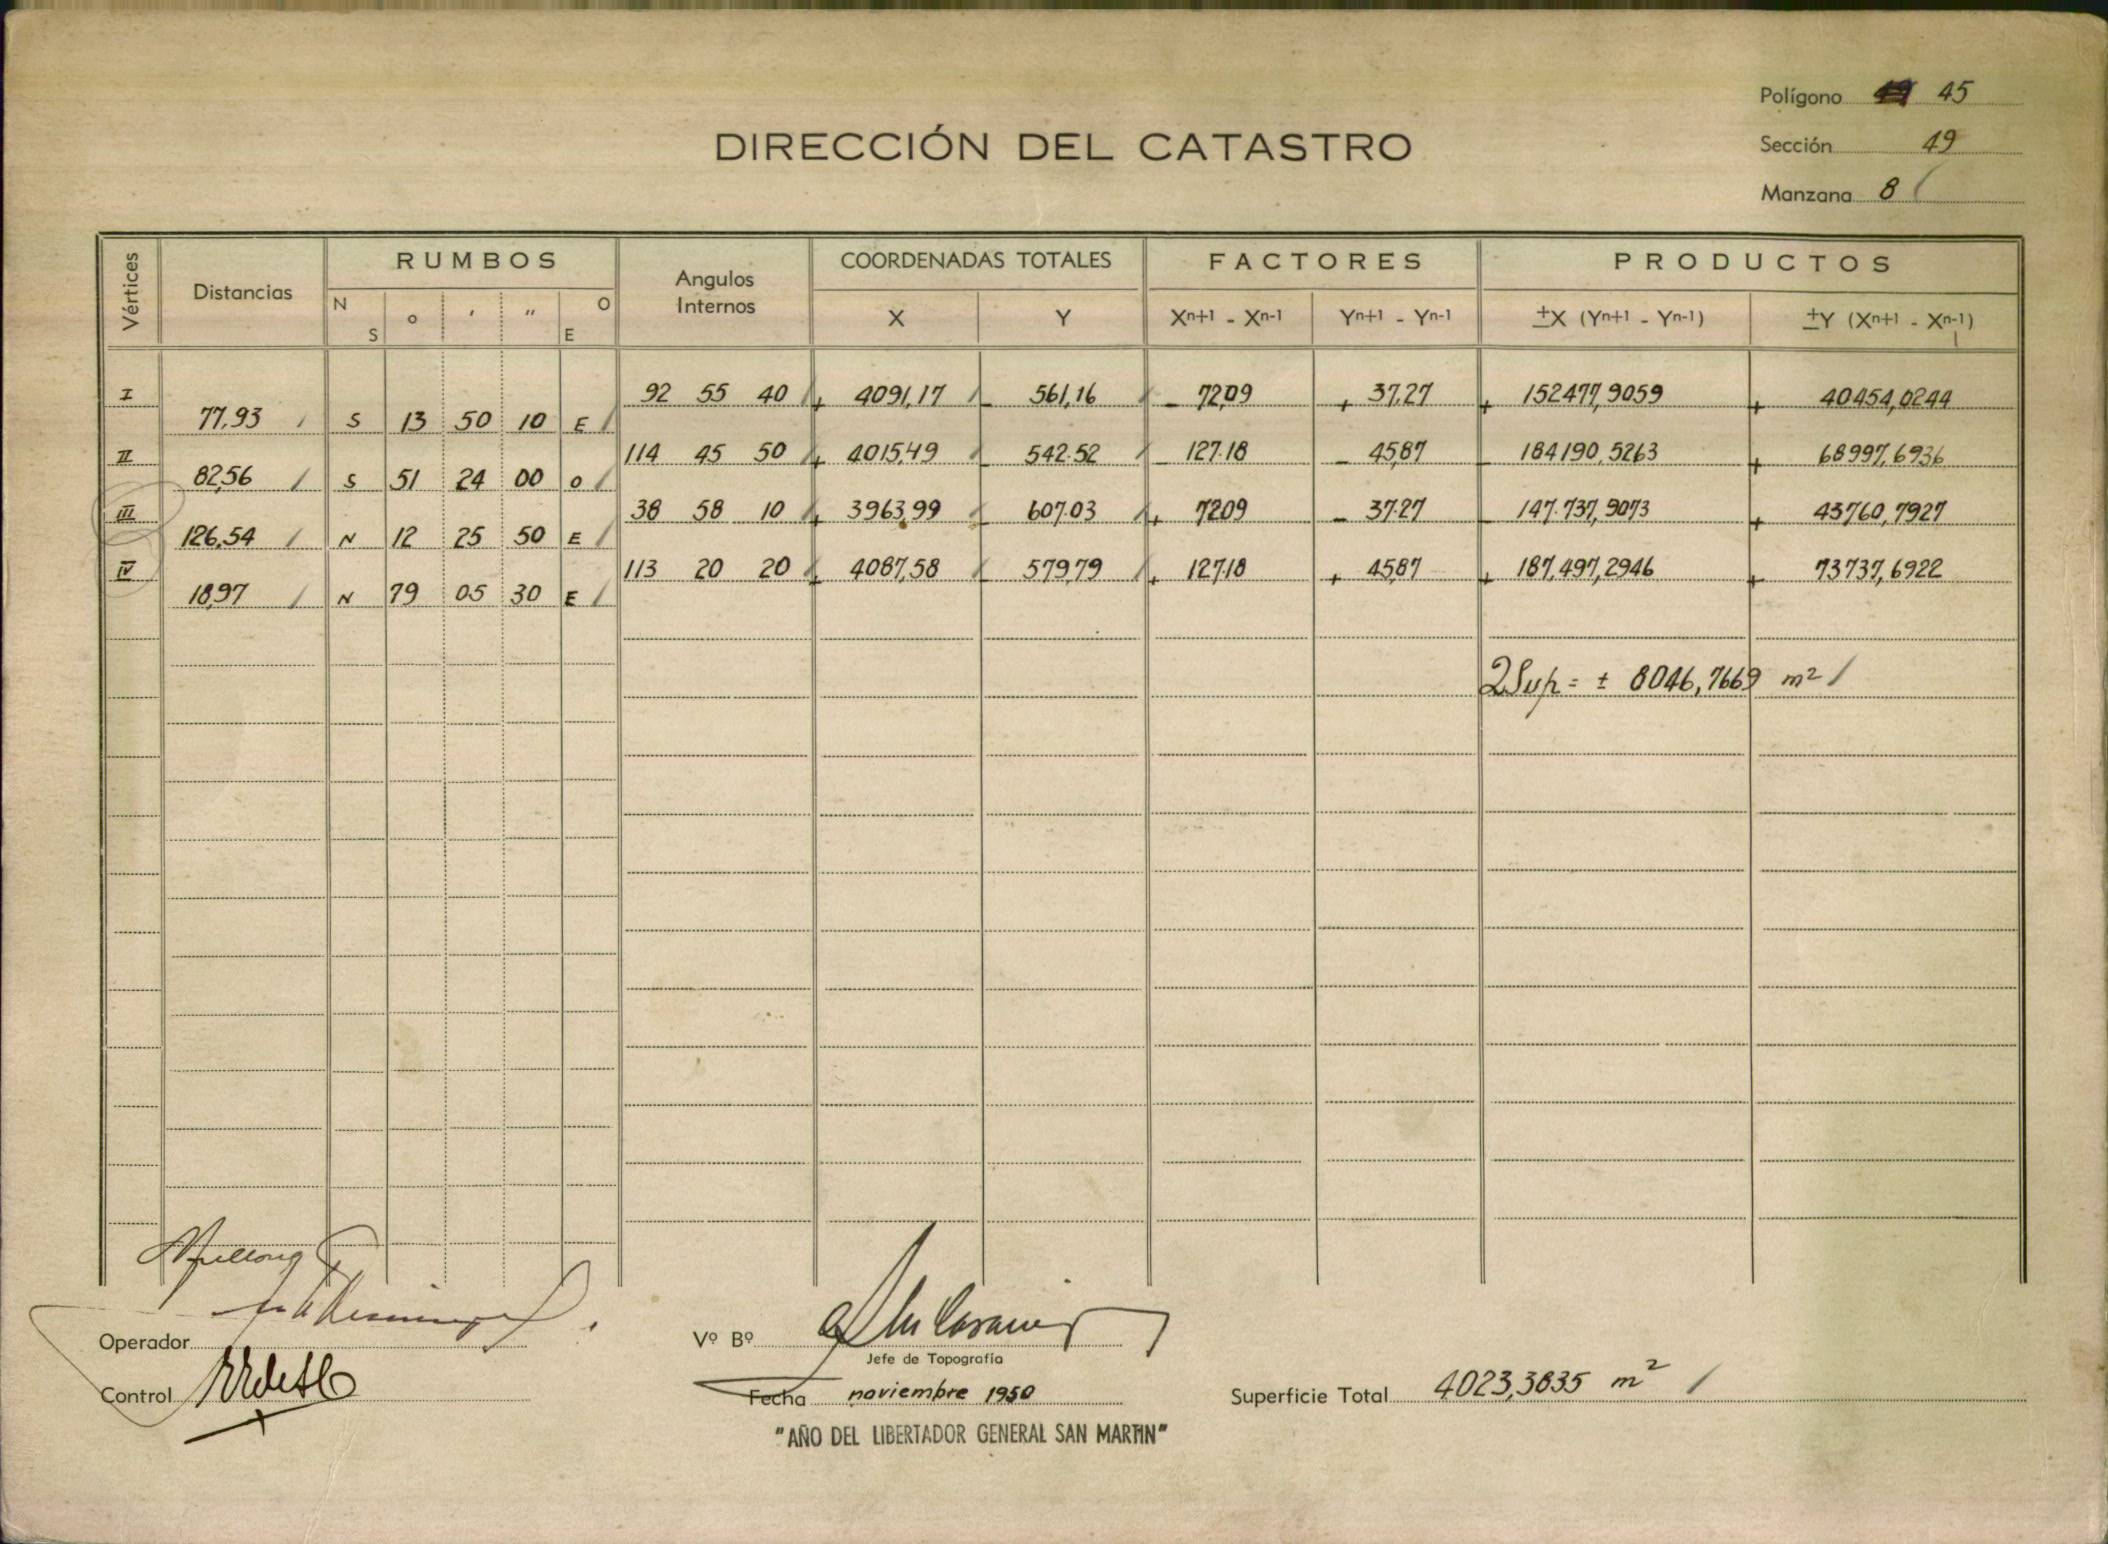 Polígono 45
DIRECCIÓN DEL CATASTRO
Sección 49
Manzana 8
Vértices Distancias RUMBOS Angulos Internos COORDENADAS TOTALES FACTORES PRODUCTOS
N S o ′ ″ O E X Y Xn+1 - Xn-1 Yn+1 - Yn-1 ±X (Yn+1 - Yn-1) ±Y (Xn+1 - Xn-1)
I 92 55 40 + 4091,17 - 561,16 - 72,09 + 37,27 + 152477,9059 + 40454,0244
77,93 S 13 50 10 E
II 114 45 50 + 4015,49 - 542.52 - 127.18 - 45,87 - 184190,5263 + 68997,6936
82,56 S 51 24 00 O
III 38 58 10 + 3963,99 - 607.03 + 72,09 - 37.27 - 147.737,9073 + 43760,7927
126,54 N 12 25 50 E
IV 113 20 20 + 4087,58 - 579,79 + 127,18 + 45,87 + 187,497,2946 + 73737,6922
18,97 N 79 05 30 E
2Sup = ± 8046,7669 m²
Operador
Vº Bº
Jefe de Topografía
Control
Fecha noviembre 1950
Superficie Total 4023,3835 m²
"AÑO DEL LIBERTADOR GENERAL SAN MARTIN"